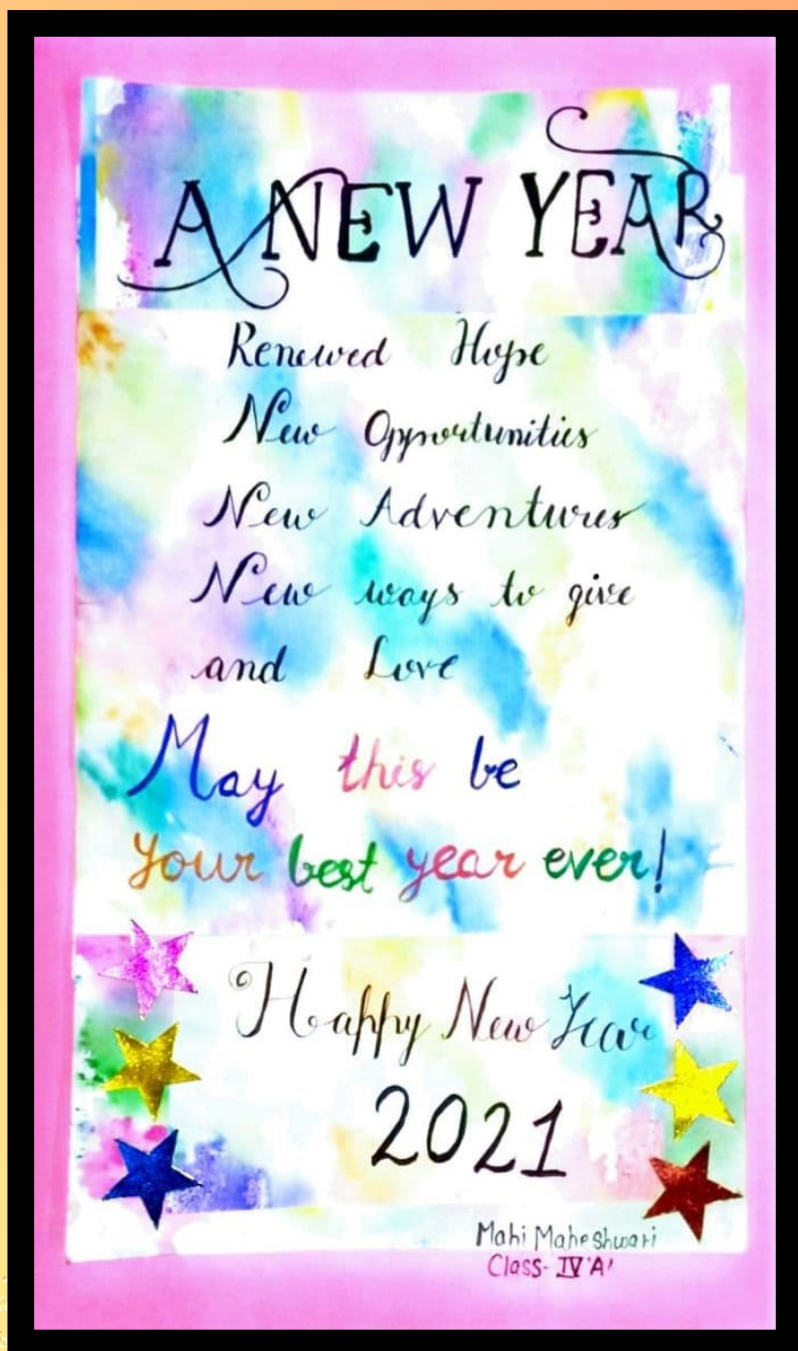 A NEW YEAR
Renewed Hope
New Opportunities
New Adventures
New ways to give
and Love
May this be
your best year ever!
Happy New Year
2021
Mahi Maheshwari
Class- IV 'A'